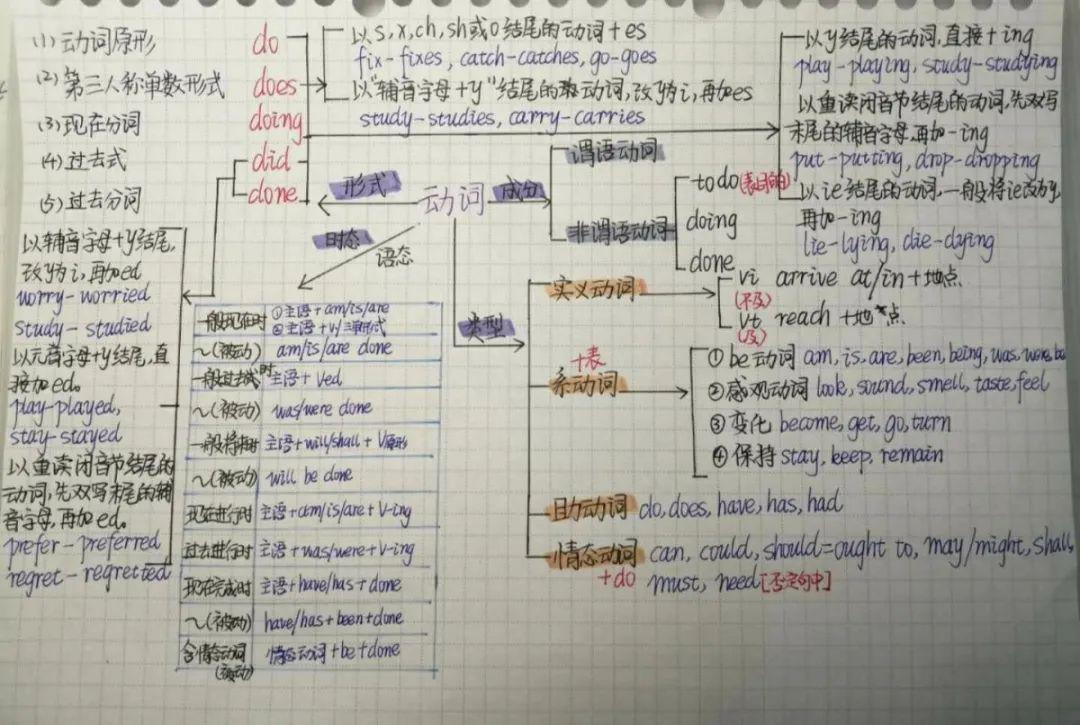 (1) 动词原形 do
(2) 第三人称单数形式 does
(3) 现在分词 doing
(4) 过去式 did
(5) 过去分词 done
以s, x, ch, sh或o结尾的动词+es
fix-fixes, catch-catches, go-goes
以"辅音字母+y"结尾的动词,改y为i,再加es
study-studies, carry-carries
以y结尾的动词,直接+ing
play-playing, study-studying
以重读闭音节结尾的动词,先双写
末尾的辅音字母,再加-ing
put-putting, drop-dropping
以ie结尾的动词,一般将ie改为y,
再加-ing
lie-lying, die-dying
以辅音字母+y结尾,
改y为i,再加ed
worry-worried
study-studied
以元音字母+y结尾,直
接加ed。
play-played,
stay-stayed
以重读闭音节结尾的
动词,先双写末尾的辅
音字母,再加ed。
prefer-preferred
regret-regretted
形式 动词 成分
谓语动词
非谓语动词
to do (表目的)
doing
done
时态
语态
一般现在时 ①主语+am/is/are
②主语+v/三单形式
~(被动) am/is/are done
一般过去式时 主语+Ved
~(被动) was/were done
一般将来时 主语+will/shall+V原形
~(被动) will be done
现在进行时 主语+am/is/are+V-ing
过去进行时 主语+was/were+V-ing
现在完成时 主语+have/has+done
~(被动) have/has+been+done
含情态动词 情态动词+be+done
(被动)
类型
实义动词
vi arrive at/in+地点
(不及)
vt reach +地点
(及)
+表
系动词
① be动词 am, is, are, been, being, was, were, be
② 感观动词 look, sound, smell, taste, feel
③ 变化 become, get, go, turn
④ 保持 stay, keep, remain
助动词 do, does, have, has, had
情态动词 can, could, should=ought to, may/might, shall,
+do must, need[否定句中]